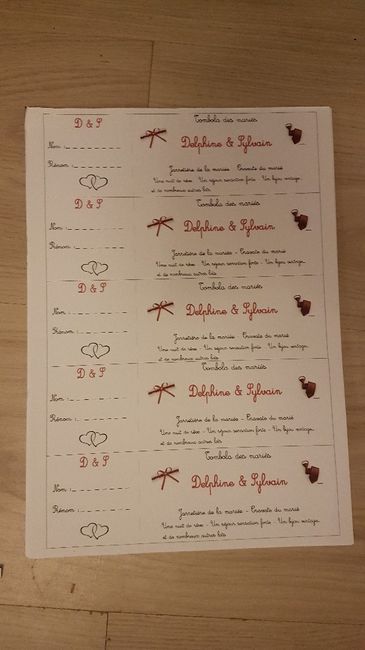 D & S
Nom :
Prénom :
Tombola des mariés
Delphine & Sylvain
Jarretière de la mariée - Cravate du marié
Une nuit de rêve - Un séjour sensation forte - Un bijou vintage
et de nombreux autres lots
D & S
Nom :
Prénom :
Tombola des mariés
Delphine & Sylvain
Jarretière de la mariée - Cravate du marié
Une nuit de rêve - Un séjour sensation forte - Un bijou vintage
et de nombreux autres lots
D & S
Nom :
Prénom :
Tombola des mariés
Delphine & Sylvain
Jarretière de la mariée - Cravate du marié
Une nuit de rêve - Un séjour sensation forte - Un bijou vintage
et de nombreux autres lots
D & S
Nom :
Prénom :
Tombola des mariés
Delphine & Sylvain
Jarretière de la mariée - Cravate du marié
Une nuit de rêve - Un séjour sensation forte - Un bijou vintage
et de nombreux autres lots
D & S
Nom :
Prénom :
Tombola des mariés
Delphine & Sylvain
Jarretière de la mariée - Cravate du marié
Une nuit de rêve - Un séjour sensation forte - Un bijou vintage
et de nombreux autres lots